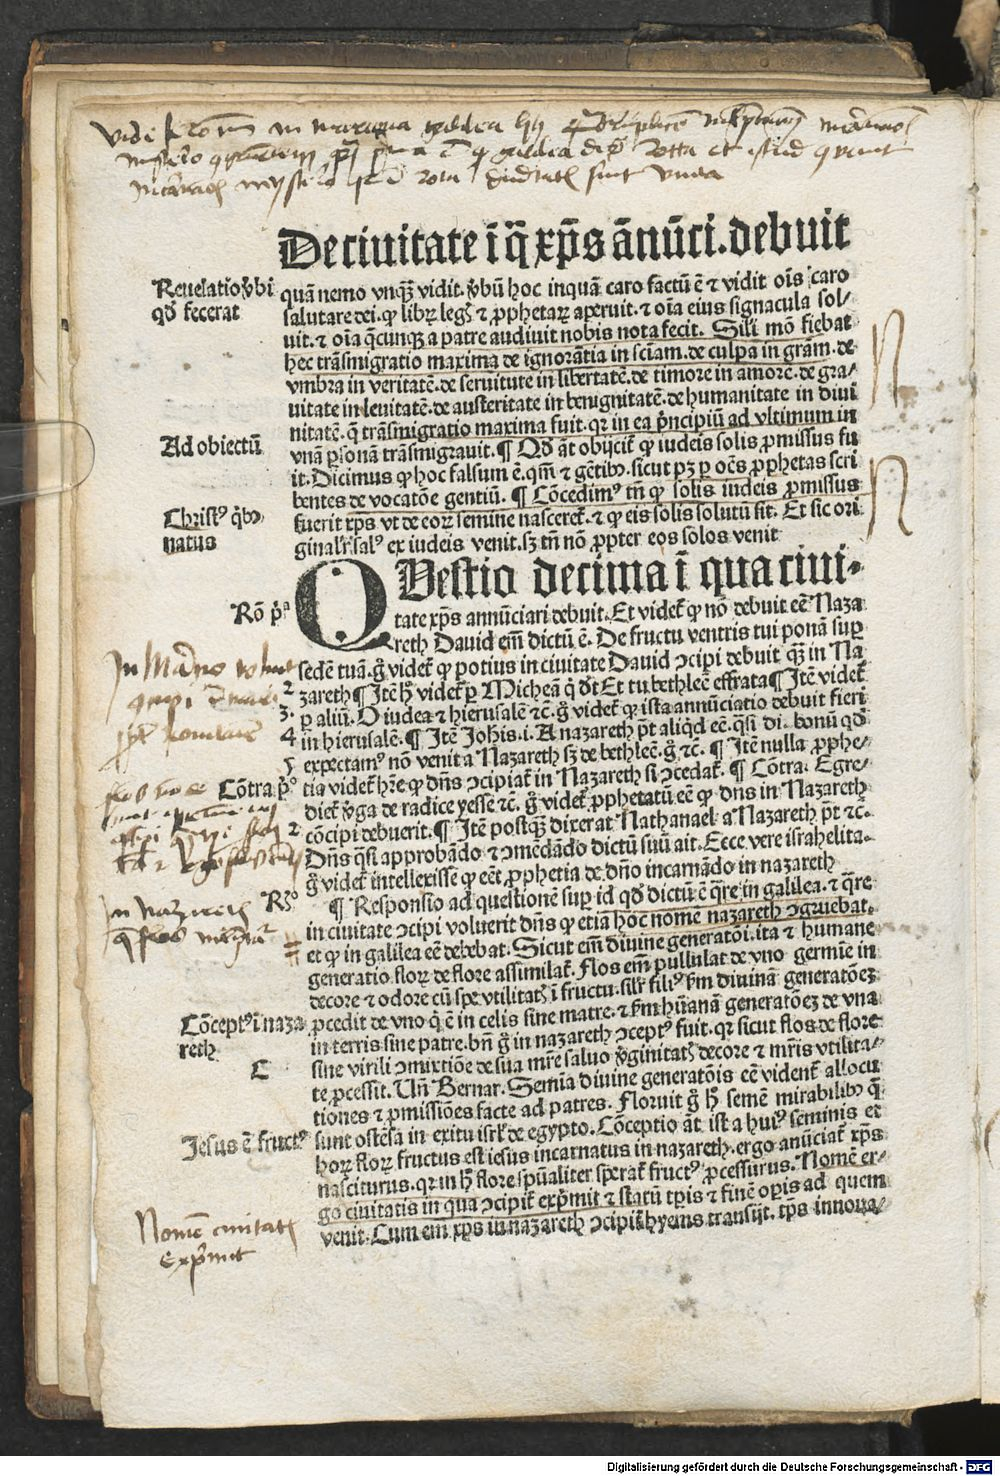 De ciuitate ī q̄ xp̄s ānūci. debuit
Reuelatio v̾bi
qd̾ fecerat
quā nemo vnq̄ꝫ vidit. v̾bū hoc inquā caro factū ē ⁊ vidit oīs caro
salutare dei. ꝙ libꝝ leg̾ ⁊ ꝓphetaꝝ aperuit. ⁊ oīa eius signacula sol⸗
uit. ⁊ oīa q̄cunqꝫ a patre audiuit nobis nota fecit. Sil̓i mō fiebat
hec trāsmigratio maxima de ignorātia in sciām. de culpa in grām. de
vmbra in veritatē. de seruitute in libertatē. de timore in amorē. de gra⸗
uitate in leuitatē. de austeritate in benignitatē. de humanitate in diui
nitatē. q̄ trāsmigratio maxima fuit. qr in ea p̓ncipiū ad vltimum in
vnā ꝑsonā trāsmigrauit. ¶ Qd̾ āt obijcit̓ ꝙ iudeis solis ꝓmissus fu
Ad obiectū
it. Dicimus ꝙ hoc falsum ē. qm̄ ⁊ gētibꝰ. sicut pꝫ ꝑ oēs ꝓphetas scri
bentes de vocatōe gentiū. ¶ Cōcedimꝰ tn̄ ꝙ solis iudeis ꝓmissus
Christꝰ q̓bꝰ
natus
fuerit xp̄s vt de eoꝝ semine nasceret̓. ⁊ ꝙ eis solis solutū sit. Et sic ori
ginal̓r sal̾ ex iudeis venit. sꝫ tn̄ nō ꝓpter eos solos venit
QVestio decima ī qua ciui⸗
Rō pͥª
tate xp̄s annūciari debuit. Et videt̓ ꝙ nō debuit eē Naza
reth Dauid em̄ dictū ē. De fructu ventris tui ponā suꝑ
sedē tuā. g̾ videt̓ ꝙ potius in ciuitate Dauid ꝯcipi debuit q̄ꝫ in Na
2
zareth ¶ Itē h̾ videt̓ ꝑ Micheā q̓ dt̾ Et tu bethleē effrata ¶ Itē videt̓
3.
ꝑ aliū. O iudea ⁊ hierusalē ⁊c̄. g̾ videt̓ ꝙ ista annūciatio debuit fieri
4
in hierusalē. ¶ Itē Joh̾is. i. A nazareth p̄t aliqd̾ eē. q̄si di. bonū qd̾
5
expectamꝰ nō venit a Nazareth sꝫ de bethleē. g̾ ⁊c̄. ¶ Itē nulla ꝓphe⸗
Cōtra pͥº
tia videt̓ h̄re ꝙ dn̄s ꝯcipiat̓ in Nazareth si ꝯcedat̓. ¶ Cōtra. Egre⸗
diet̓ v̓ga de radice yesse ⁊c̄. g̾ videt̓ ꝓphetatū eē ꝙ dn̄s in Nazareth
2
cōcipi debuerit. ¶ Itē postq̄ꝫ dixerat Nathanael a Nazareth p̄t ⁊c̄.
Dn̄s q̄si approbādo ⁊ ꝯmēdādo dictū suū ait. Ecce vere israhelita.
g̾ videt̓ intellexisse ꝙ eēt ꝓphetia de dn̄o incarnādo in nazareth
Rꝰ
¶ Responsio ad questionē suꝑ id qd̾ dictū ē q̄re in galilea. ⁊ q̄re
in ciuitate ꝯcipi voluerit dn̄s ꝙ etiā hoc nomē nazareth ꝯgruebat.
et ꝙ in galilea eē debebat. Sicut em̄ diuine generatōi. ita ⁊ humane
generatio floꝝ de flore assimilat̓. Flos em̄ pullulat de vno germie in
decore ⁊ odore cū spe vtilitat̾ ī fructu. sil̓r filiꝰ ẜm diuinā generatōeꝫ
Cōceptꝰ ī naza
reth
ꝓcedit de vno q̓ ē in celis sine matre. ⁊ ẜm hūanā generatōeꝫ de vna
in terris sine patre. bn̄ g̾ in nazareth ꝯceptꝰ fuit. qr sicut flos de flore
C
sine virili ꝯmixtiōe de sua mr̄e saluo v̓ginitat̾ decore ⁊ mr̄is vtilita⸗
te ꝓcessit. Un̄ Bernar. Semīa diuine generatōis eē vident̓ allocu
tiones ⁊ ꝓmissiōes facte ad patres. Floruit g̾ h̾ semē mirabilibꝰ q̄
Jesus ē fructꝰ
sunt ostēsa in exitu isrl̓ de egypto. Cōceptio āt ista huiꝰ seminis et
hoꝝ floꝝ fructus est iesus incarnatus in nazareth. ergo anūciat̓ xp̄s
nasciturus. qr in h̾ flore spūaliter sperat̓ fructꝰ ꝓcessurus. Nomē er⸗
go ciuitatis in qua ꝯcipit̓ exp̓mit ⁊ statū tp̄is ⁊ finē oꝑis ad quem
Nomē ciuitatis
Exp̓mit
venit. Cum em̄ xp̄s in nazareth ꝯcipit̓ hyems transijt. tp̄s innoua⸗
Digitalisierung gefördert durch die Deutsche Forschungsgemeinschaft - DFG